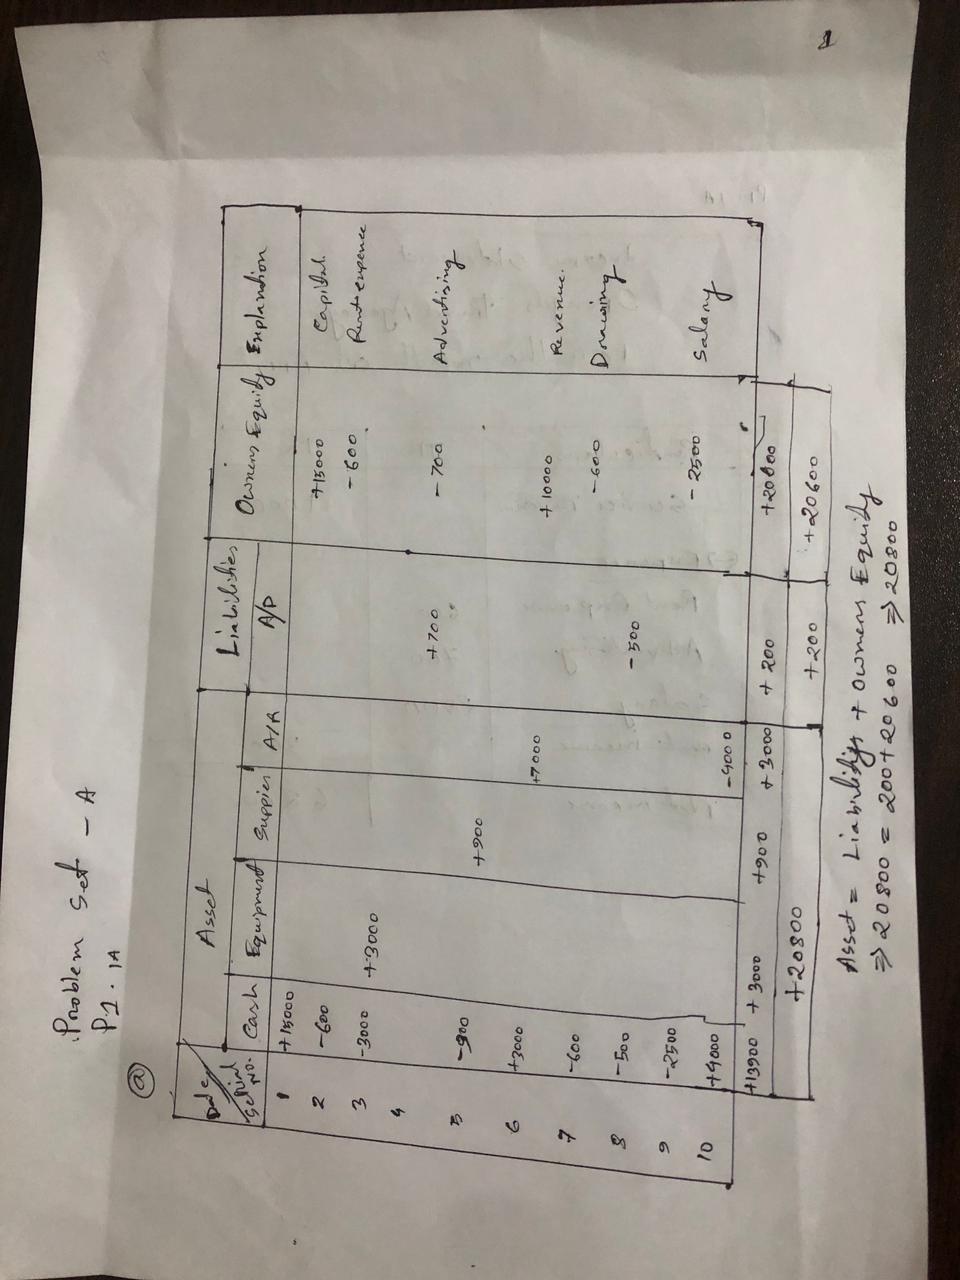 Problem Set - A
P1.1A
(a)
Date/Serial No. Asset Liabilities Owners Equity Explantion
Cash Equipment Suppies A/R A/P
1 +15000 +15000 Capital
2 -600 -600 Rent expence
3 -3000 +3000
4 +700 -700 Advertising
5 -900 +900
6 +3000 +7000 +10000 Revenue.
7 -600 -600 Drawing
8 -500 -500
9 -2500 -2500 Salary
10 +4000 -4000
+13900 +3000 +900 +3000 +200 +20600
+20800 +200 +20600
Asset = Liabilities + Owners Equity
⇒ 20800 = 200+20600 ⇒ 20800
1